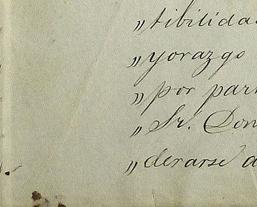 „tibilida
„yorazgo
„por par
„Sr. Don
„derarse a